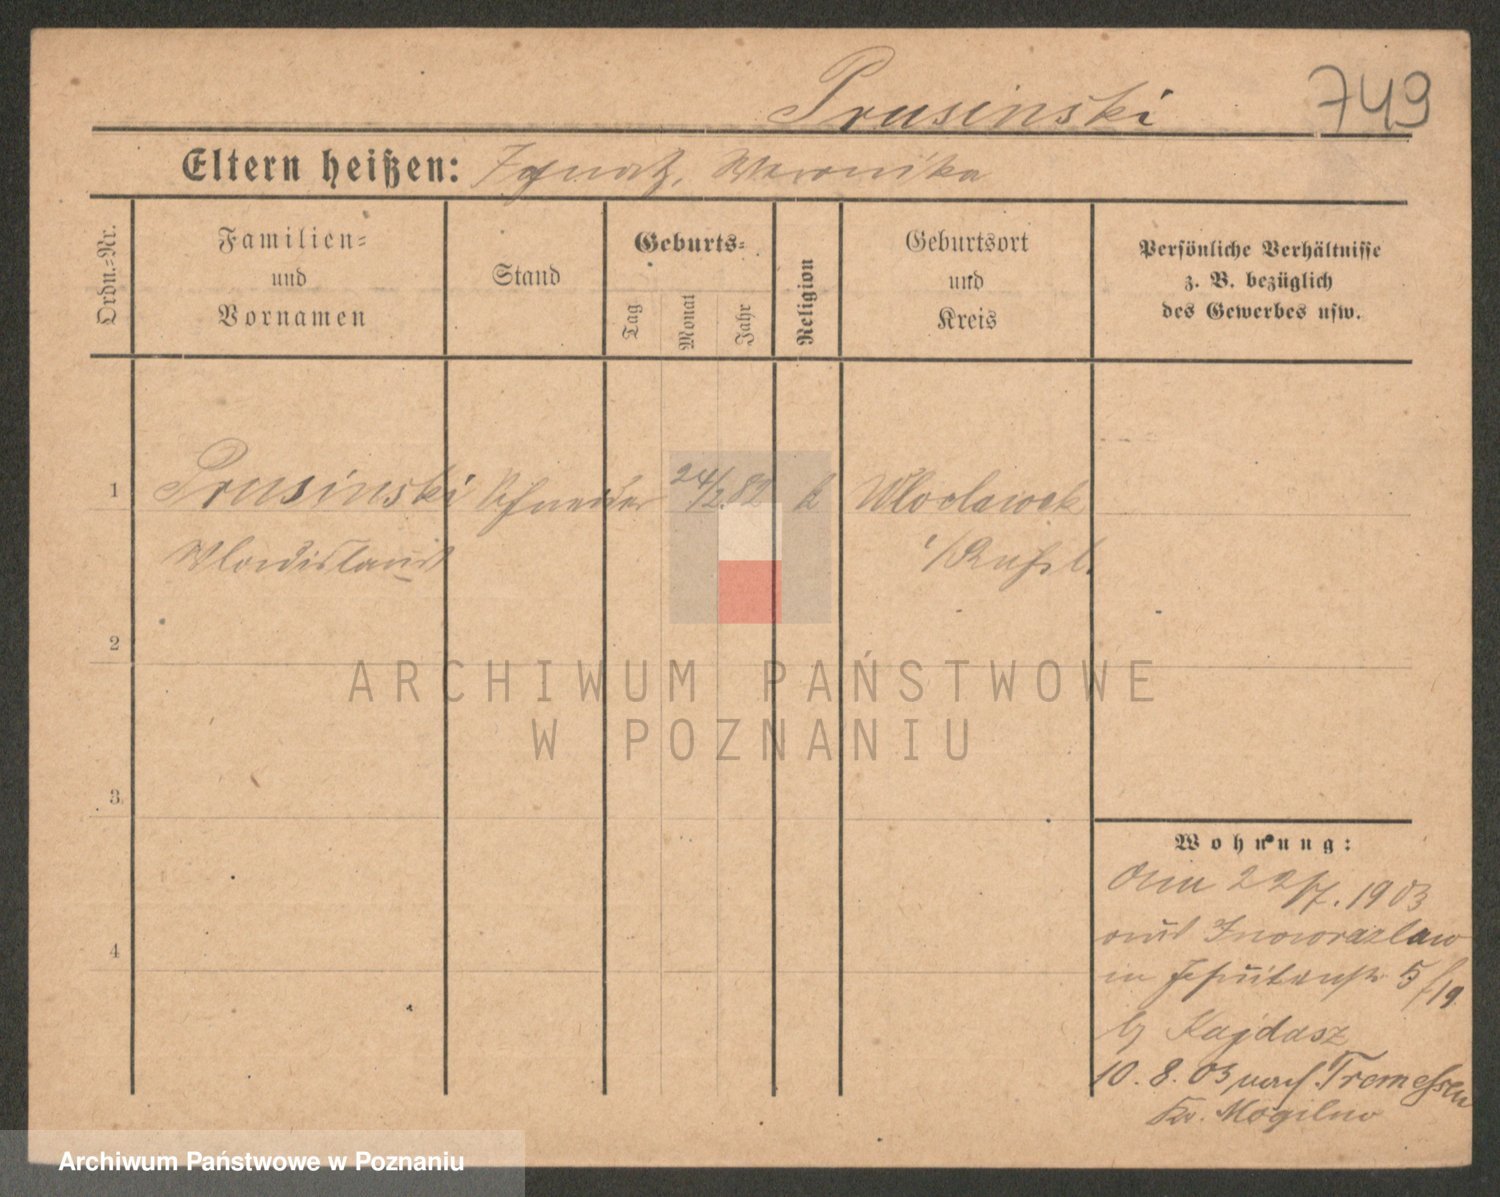 Prusinski 749
Eltern heißen: Ignatz, Weronika
Ordn.-Nr.
Familien-
und
Vornamen
Stand
Geburts-
Tag
Monat
Jahr
Religion
Geburtsort
und
Kreis
Persönliche Verhältnisse
z. B. bezüglich
des Gewerbes usw.
1 Prusinski Schneider 24/2. 82 k Wloclawek
Wladislaus i/Russl.
2
3
4
Wohnung:
Am 22/7. 1903
aus Inowrazlaw
in Jesuitenstr 5/19
b/ Kajdasz
10. 8. 03 nach Tremessen
Kr. Mogilno
ARCHIWUM PAŃSTWOWE
W POZNANIU
Archiwum Państwowe w Poznaniu